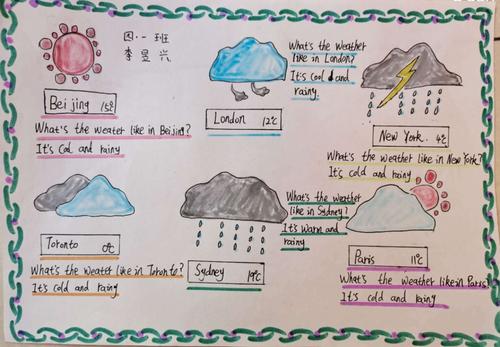 四·一班
李昱兴
Beijing 15℃
What's the weater like in Beijing?
It's Cool and rainy
London 12℃
What's the weather
like in London?
It's Cool and
rainy
New York. 4℃
What's the weather like in New York?
It's cold and rainy
Toronto 0℃
What's the weater like in Toronto?
It's cold and rainy
Sydney 19℃
What's the weather
like in Sydney?
It's warm and
rainy
Paris 11℃
What's the weather like in Paris?
It's cold and rainy